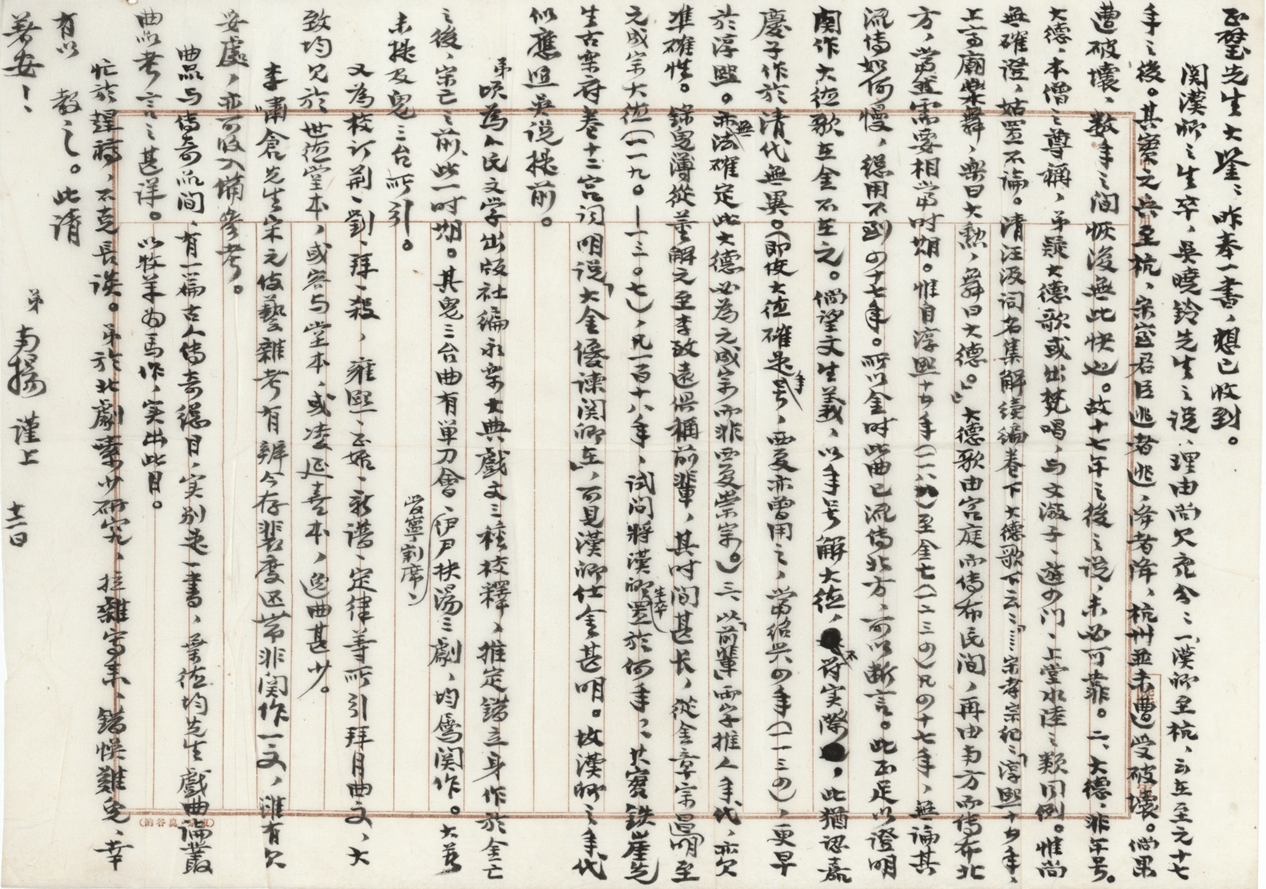 丕堃先生大鉴：昨奉一書，想已收到。
關漢卿之生卒，吳曉鈴先生之説，理由尚欠充分：一、漢卿至杭，云在至元十七
年之後。其實元兵至杭，宋室君臣逃者逃，降者降，杭州並未遭受破壞。倘果
遭破壞，數年之間恢復無此快也。故十七年之後之説，未必可靠。二、大德，非年号。
大德，本僧之尊稱，弟疑大德歌或出梵唱，与文溆子、遊四门、上堂水陸之類同例。惟尚
無確證，姑置不論。清汪汲词名集解續编卷下大德歌下云：「宋孝宗紀：『淳熙十四年，
上高廟樂舞，樂曰大勲，舞曰大德。』」大德歌由宫庭而傳布民间，再由南方而傳布北
方，當然需要相當时期。惟自淳熙十四年（一一八七）至金亡（一二三四）凡四十七年，無論其
流傳如何慢，總用不到四十七年。所以金时此曲已流傳北方，可以断言。此正足以證明
関作大德歌在金不在元。倘望文生義，以年号解大德，不符实際，此猶認嘉
慶子作於清代無異。（即使大德確是年号，西夏亦曾用之，當紹兴四年（一一三四），更早
於淳熙。亦無法確定此大德必為元成宗而非西夏崇宗。）三、以「前輩」两字推人年代，亦欠
準確性。錄鬼簿從董解元至李致遠俱稱前輩，其时间甚长，從金章宗昌明至
元成宗大德（一一九〇——一三〇七），凡一百十八年，試问將漢卿生卒置於何年？其实铁崖先
生古樂府卷十二宫词明说「大金優諫関卿在」，可見漢卿仕金甚明。故漢卿之年代
似應照吳说提前。
弟頃為人民文学出版社編永樂大典戲文三種校釋，推定錯立身作於金亡
之後，宋亡之前，此一时期。其鬼三台曲有単刀會、伊尹扶湯二劇，均屬関作。大著
（管寧割席）
未提及鬼三台所引。
又為校订荊、劉、拜、殺，雍熙、正始、新譜、定律等所引拜月曲文，大
致均见於世德堂本，或容与堂本，或凌延喜本，逸曲甚少。
李嘯倉先生宋元伎藝雜考有辨今存裴度还带非関作一文，雖有欠
妥處，亦可收入備參考。
曲品与傳奇品间，有一篇古人傳奇總目，实别是一書，葉德均先生戲曲論叢
曲品考言之甚详。以牧羊為馬作，实出此目。
忙於趕時，不克長谈。弟於北劇素少研究，拉雜写来，錯悞難免，幸
有以教之。此請
著安！
弟 南揚 谨上 十二日